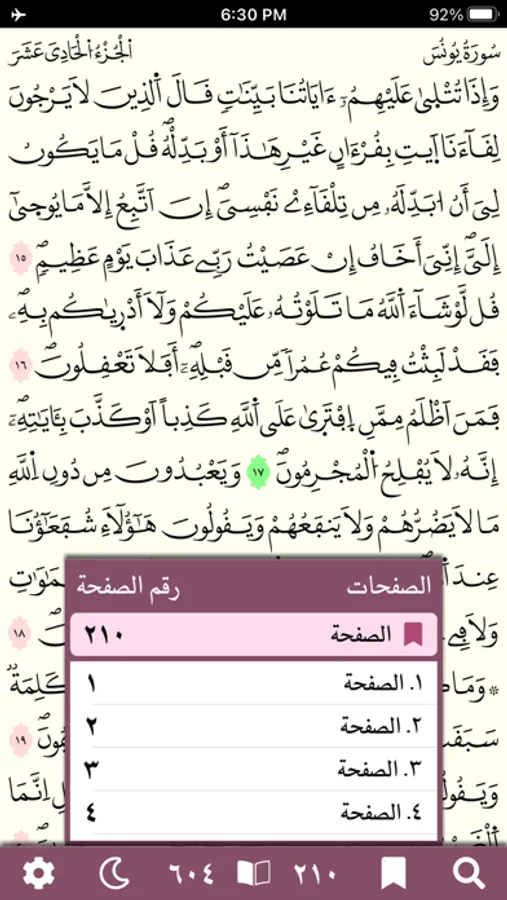 6:30 PM 92%
سُورَةُ يُونُسَ الْجُزْءُ الْحَادِي عَشَرَ
وَإِذَا تُتْلَىٰ عَلَيْهِمُۥٓ ءَايَاتُنَا بَيِّنَٰتٖ قَالَ ٱلذِينَ لَا يَرْجُونَ
لِقَآءَنَا ٱيتِ بِقُرْءَانٍ غَيْرِ هَٰذَآ أَوْ بَدِّلْهُۖ قُلْ مَا يَكُونُ
لِيَ أَنُ ابَدِّلَهُۥ مِن تِلْقَآءِےْ نَفْسِيَۖ إِنَ ٱتَّبِعُ إِلَّا مَا يُوحَىٰٓ
إِلَيَّۖ إِنِّيَ أَخَافُ إِنْ عَصَيْتُ رَبِّے عَذَابَ يَوْمٍ عَظِيمٖۖ ١٥
قُل لَّوْ شَآءَ ٱللَّهُ مَا تَلَوْتُهُۥ عَلَيْكُمْ وَلَآ أَدْر۪يٰكُم بِهِۦۖ
فَقَدْ لَبِثْتُ فِيكُمْ عُمُراٗ مِّن قَبْلِهِۦٓۖ أَفَلَا تَعْقِلُونَۖ ١٦
فَمَنَ ٱظْلَمُ مِمَّنِ ٱِفْتَر۪ىٰ عَلَى ٱللَّهِ كَذِباً ٱوْ كَذَّبَ بِـَٔايَٰتِهِۦٓۖ
إِنَّهُۥ لَا يُفْلِحُ ٱلْمُجْرِمُونَۖ ١٧ وَيَعْبُدُونَ مِن دُونِ ٱللَّهِ
مَا لَا يَضُرُّهُمْ وَلَا يَنفَعُهُمْ وَيَقُولُونَ هَٰٓؤُلَآءِ شُفَعَٰٓؤُنَا
عِندَ
وَلَا فِے ١٨
۞ وَمَا كَلِمَةٞ
سَبَقَتْ ١٩
إِنَّمَا
الصفحات رقم الصفحة
الصفحة ٢١٠
١. الصفحة ١
٢. الصفحة ٢
٣. الصفحة ٣
٤. الصفحة ٤
٢١٠ ٦٠٤